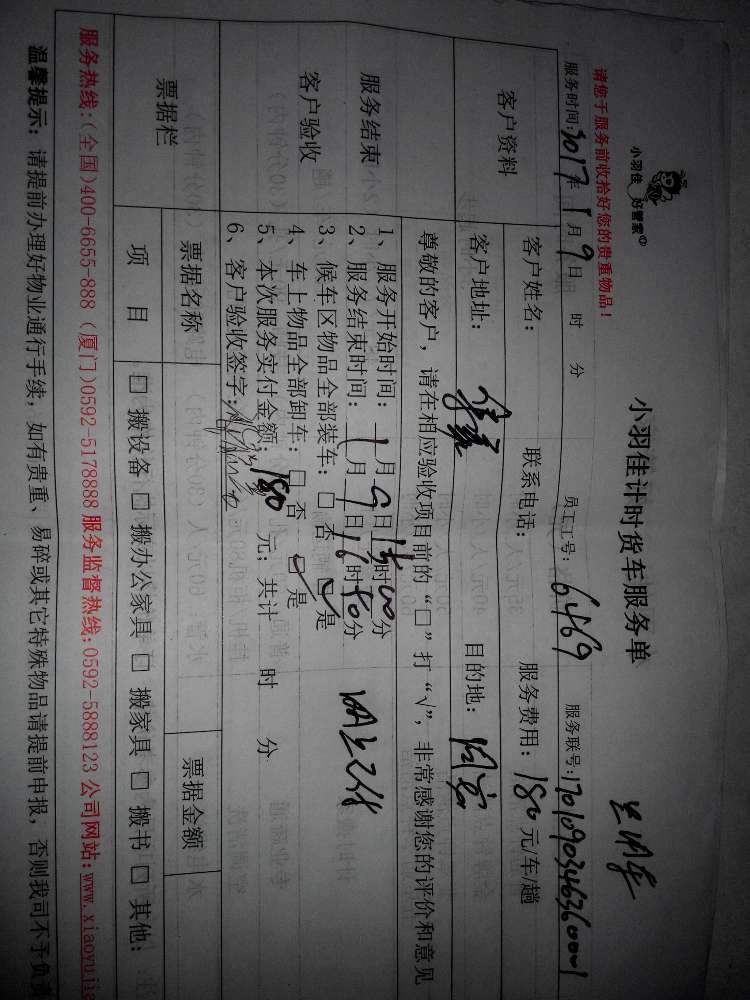 小羽佳 好管家
小羽佳计时货车服务单
请您于服务前收拾好您的贵重物品!
服务时间:2017年1月9日 时 分 员工工号: 6469 服务联号:1701090346360001
客户资料
客户姓名: 联系电话: 服务费用: 180元/车/趟
客户地址: 目的地:
尊敬的客户, 请在相应验收项目前的“□”打“√”, 非常感谢您的评价和意见
服务结束
客户验收
1、服务开始时间: 1月9日15时00分
2、服务结束时间: 1月9日16时40分
3、候车区物品全部装车: □ 否 □ 是
4、车上物品全部卸车: □ 否 □ 是
5、本次服务实付金额: 180 元; 共计 时 分
6、客户验收签字:
票据栏 票据名称 票据金额
项 目 □ 搬设备 □ 搬办公家具 □ 搬家具 □ 搬书 □ 其他:
服务热线:(全国)400-6655-888 (厦门)0592-5178888 服务监督热线:0592-5888123 公司网站:www.xiaoyujia
温馨提示: 请提前办理好物业通行手续, 如有贵重、易碎或其它特殊物品请提前申报, 否则我司不予负责